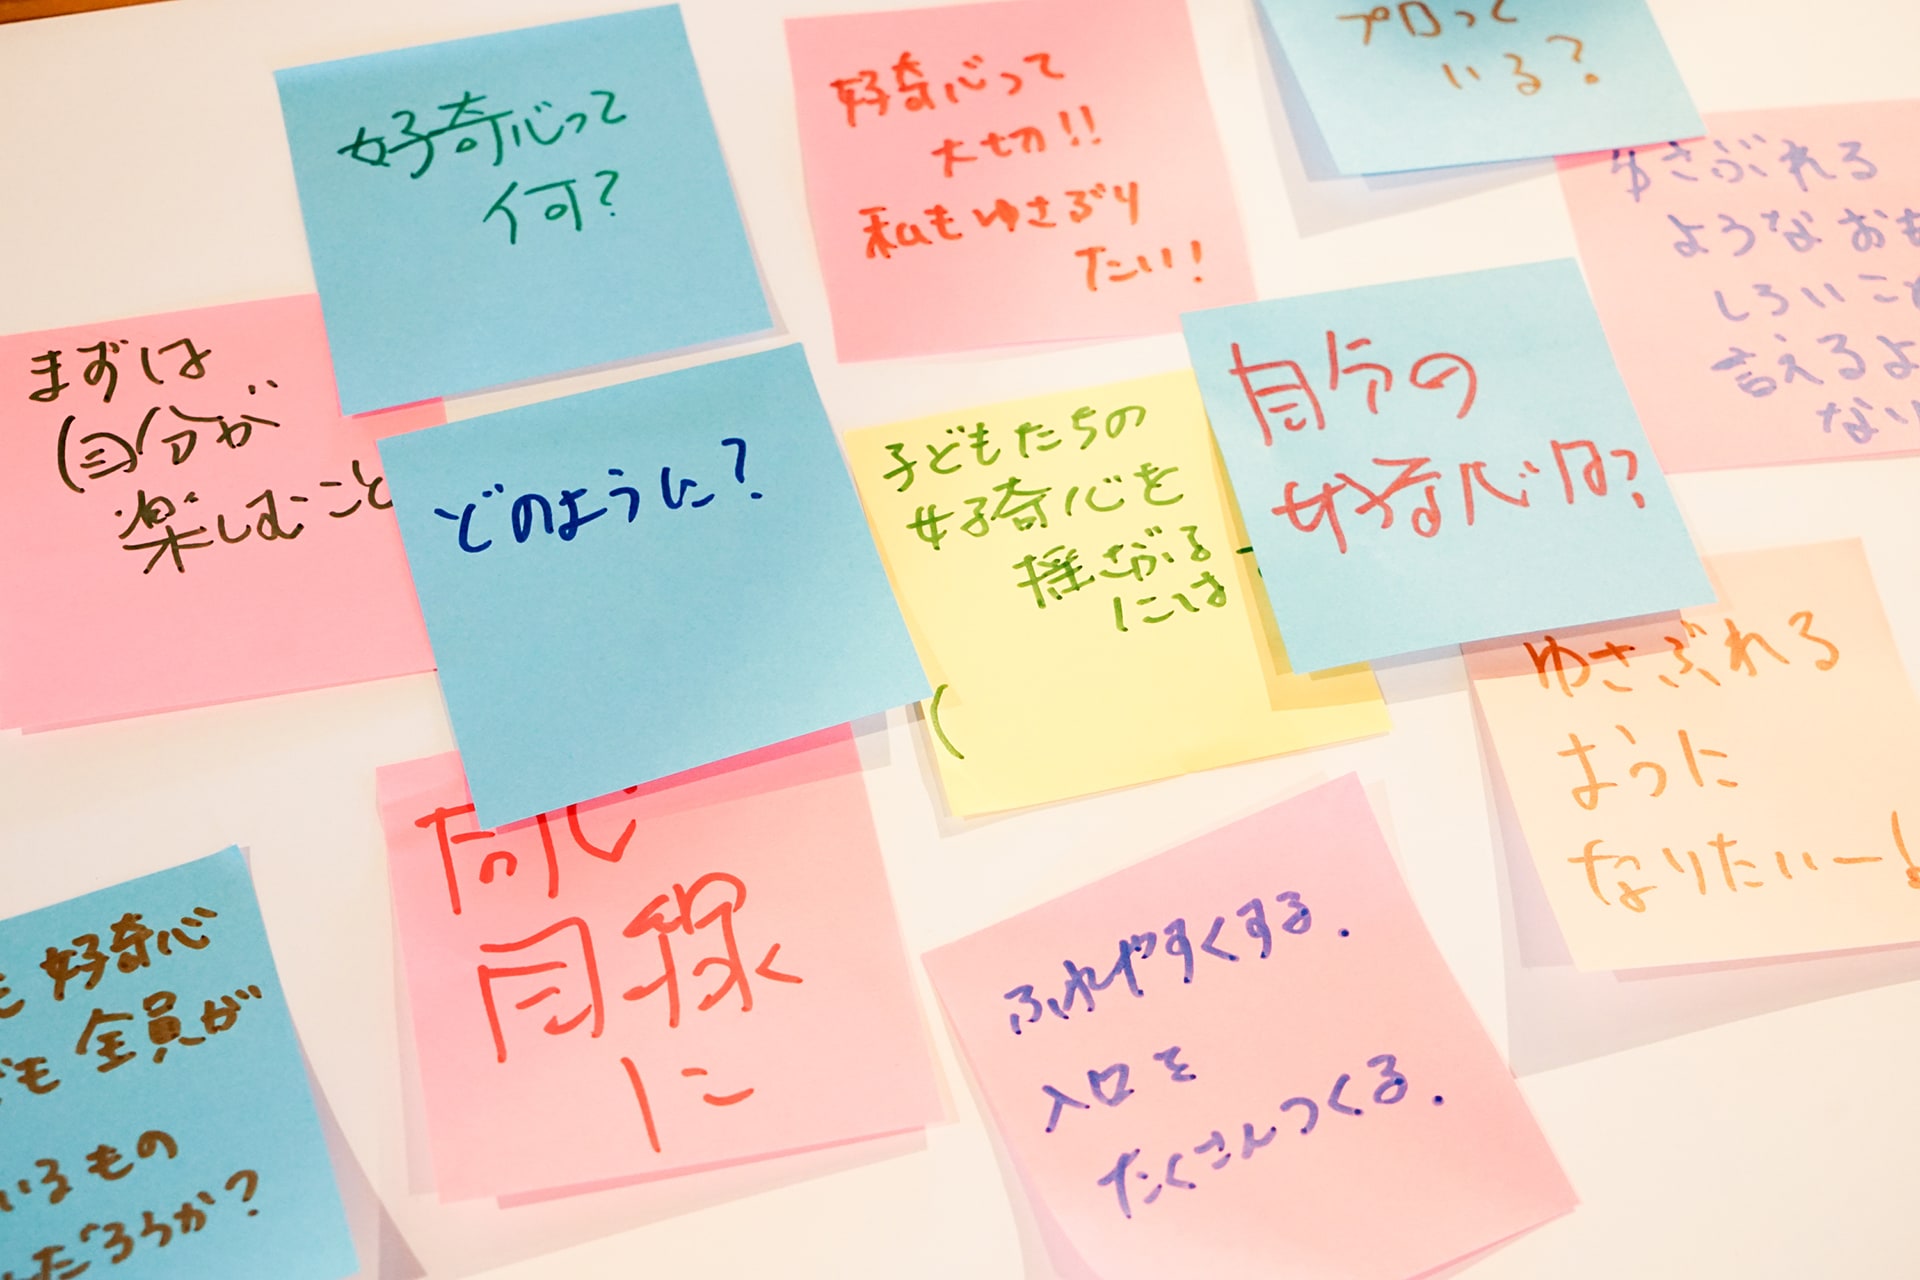 好奇心って
何?
好奇心って
大切!!
私もゆさぶり
たい!
プロって
いる?
ゆさぶれる
ような おも
しろいこと
言えるよ
ない
まずは
(自分が
楽しむこと
どのように?
子どもたちの
好奇心を
揺さぶる
には
(
自分の
好奇心は?
ゆさぶれる
ように
なりたいー!
同じ
目線
に
も 好奇心
ども 全員が
いるもの
んだろうか?
ふれやすくする.
入口を
たくさんつくる.